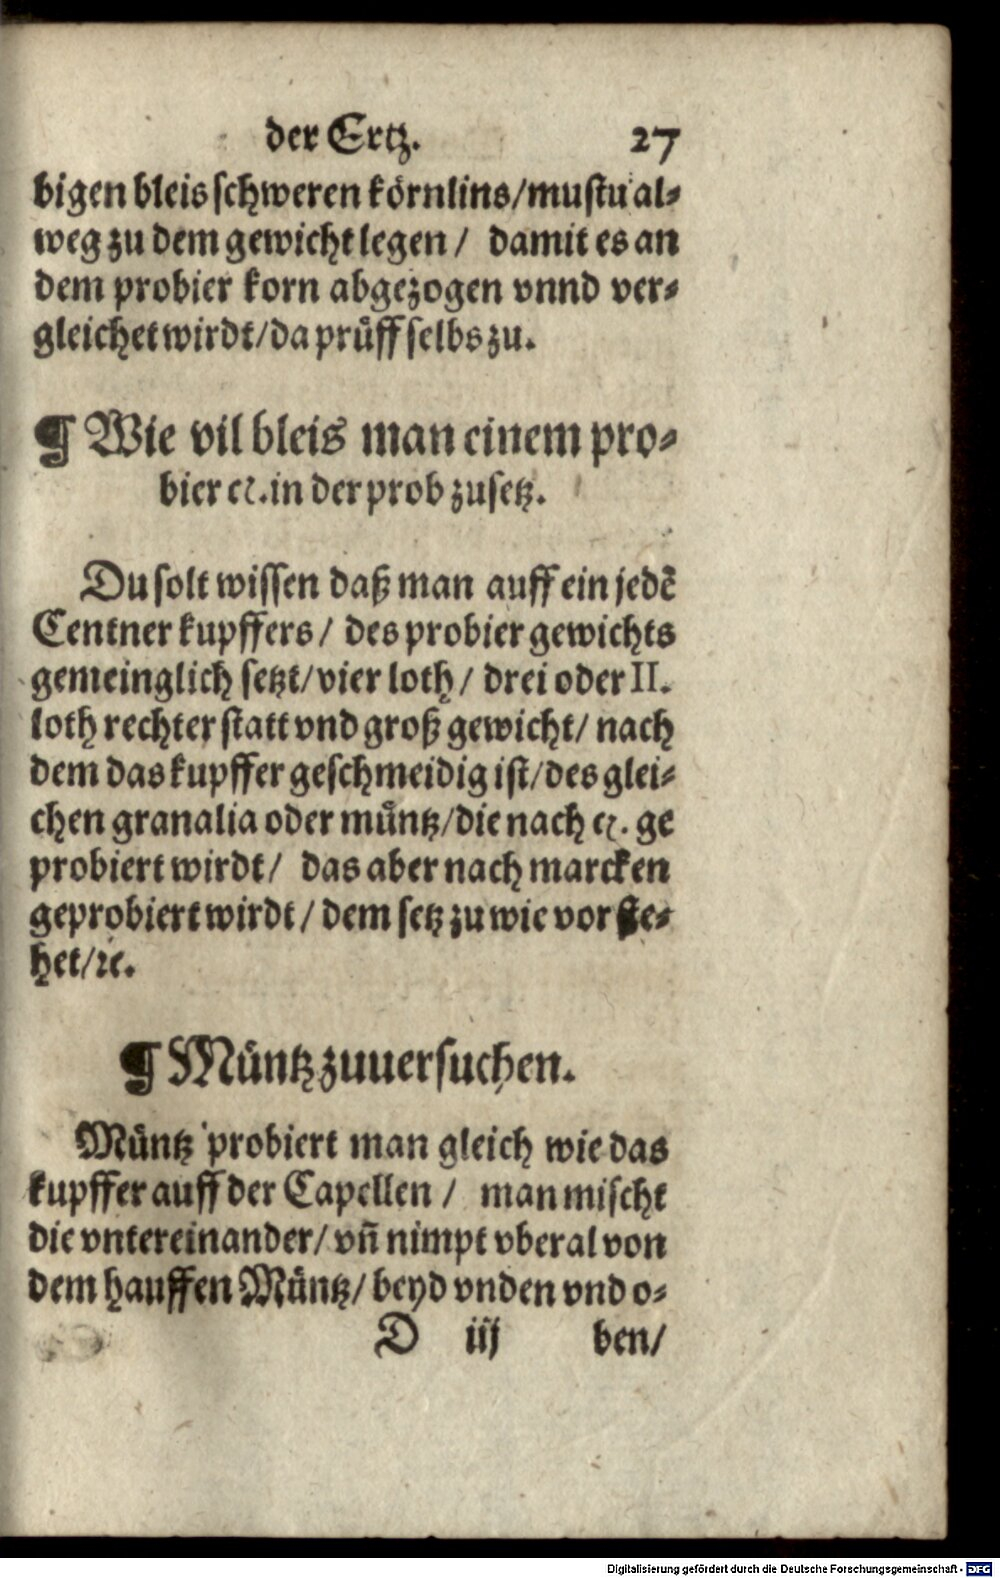 der Ertz. 27
bigen bleis schweren körnlins/mustu al⸗
weg zu dem gewicht legen / damit es an
dem probier korn abgezogen vnnd ver⸗
gleichet wirdt/da prüff selbs zu.
¶ Wie vil bleis man einem pro⸗
bier cꝛ. in der prob zusetz.
Du solt wissen daß man auff ein jedē
Centner kupffers / des probier gewichts
gemeinglich setzt/vier loth / drei oder II.
loth rechter statt vnd groß gewicht/ nach
dem das kupffer geschmeidig ist/des glei⸗
chen granalia oder müntz/die nach cꝛ. ge
probiert wirdt / das aber nach marcken
geprobiert wirdt / dem setz zu wie vor ste⸗
het/ꝛc.
¶ Müntz zuuersuchen.
Müntz probiert man gleich wie das
kupffer auff der Capellen / man mischt
die vntereinander/ vñ nimpt vberal von
dem hauffen Müntz/ beyd vnden vnd o⸗
D iij ben/
Digitalisierung gefördert durch die Deutsche Forschungsgemeinschaft - DFG